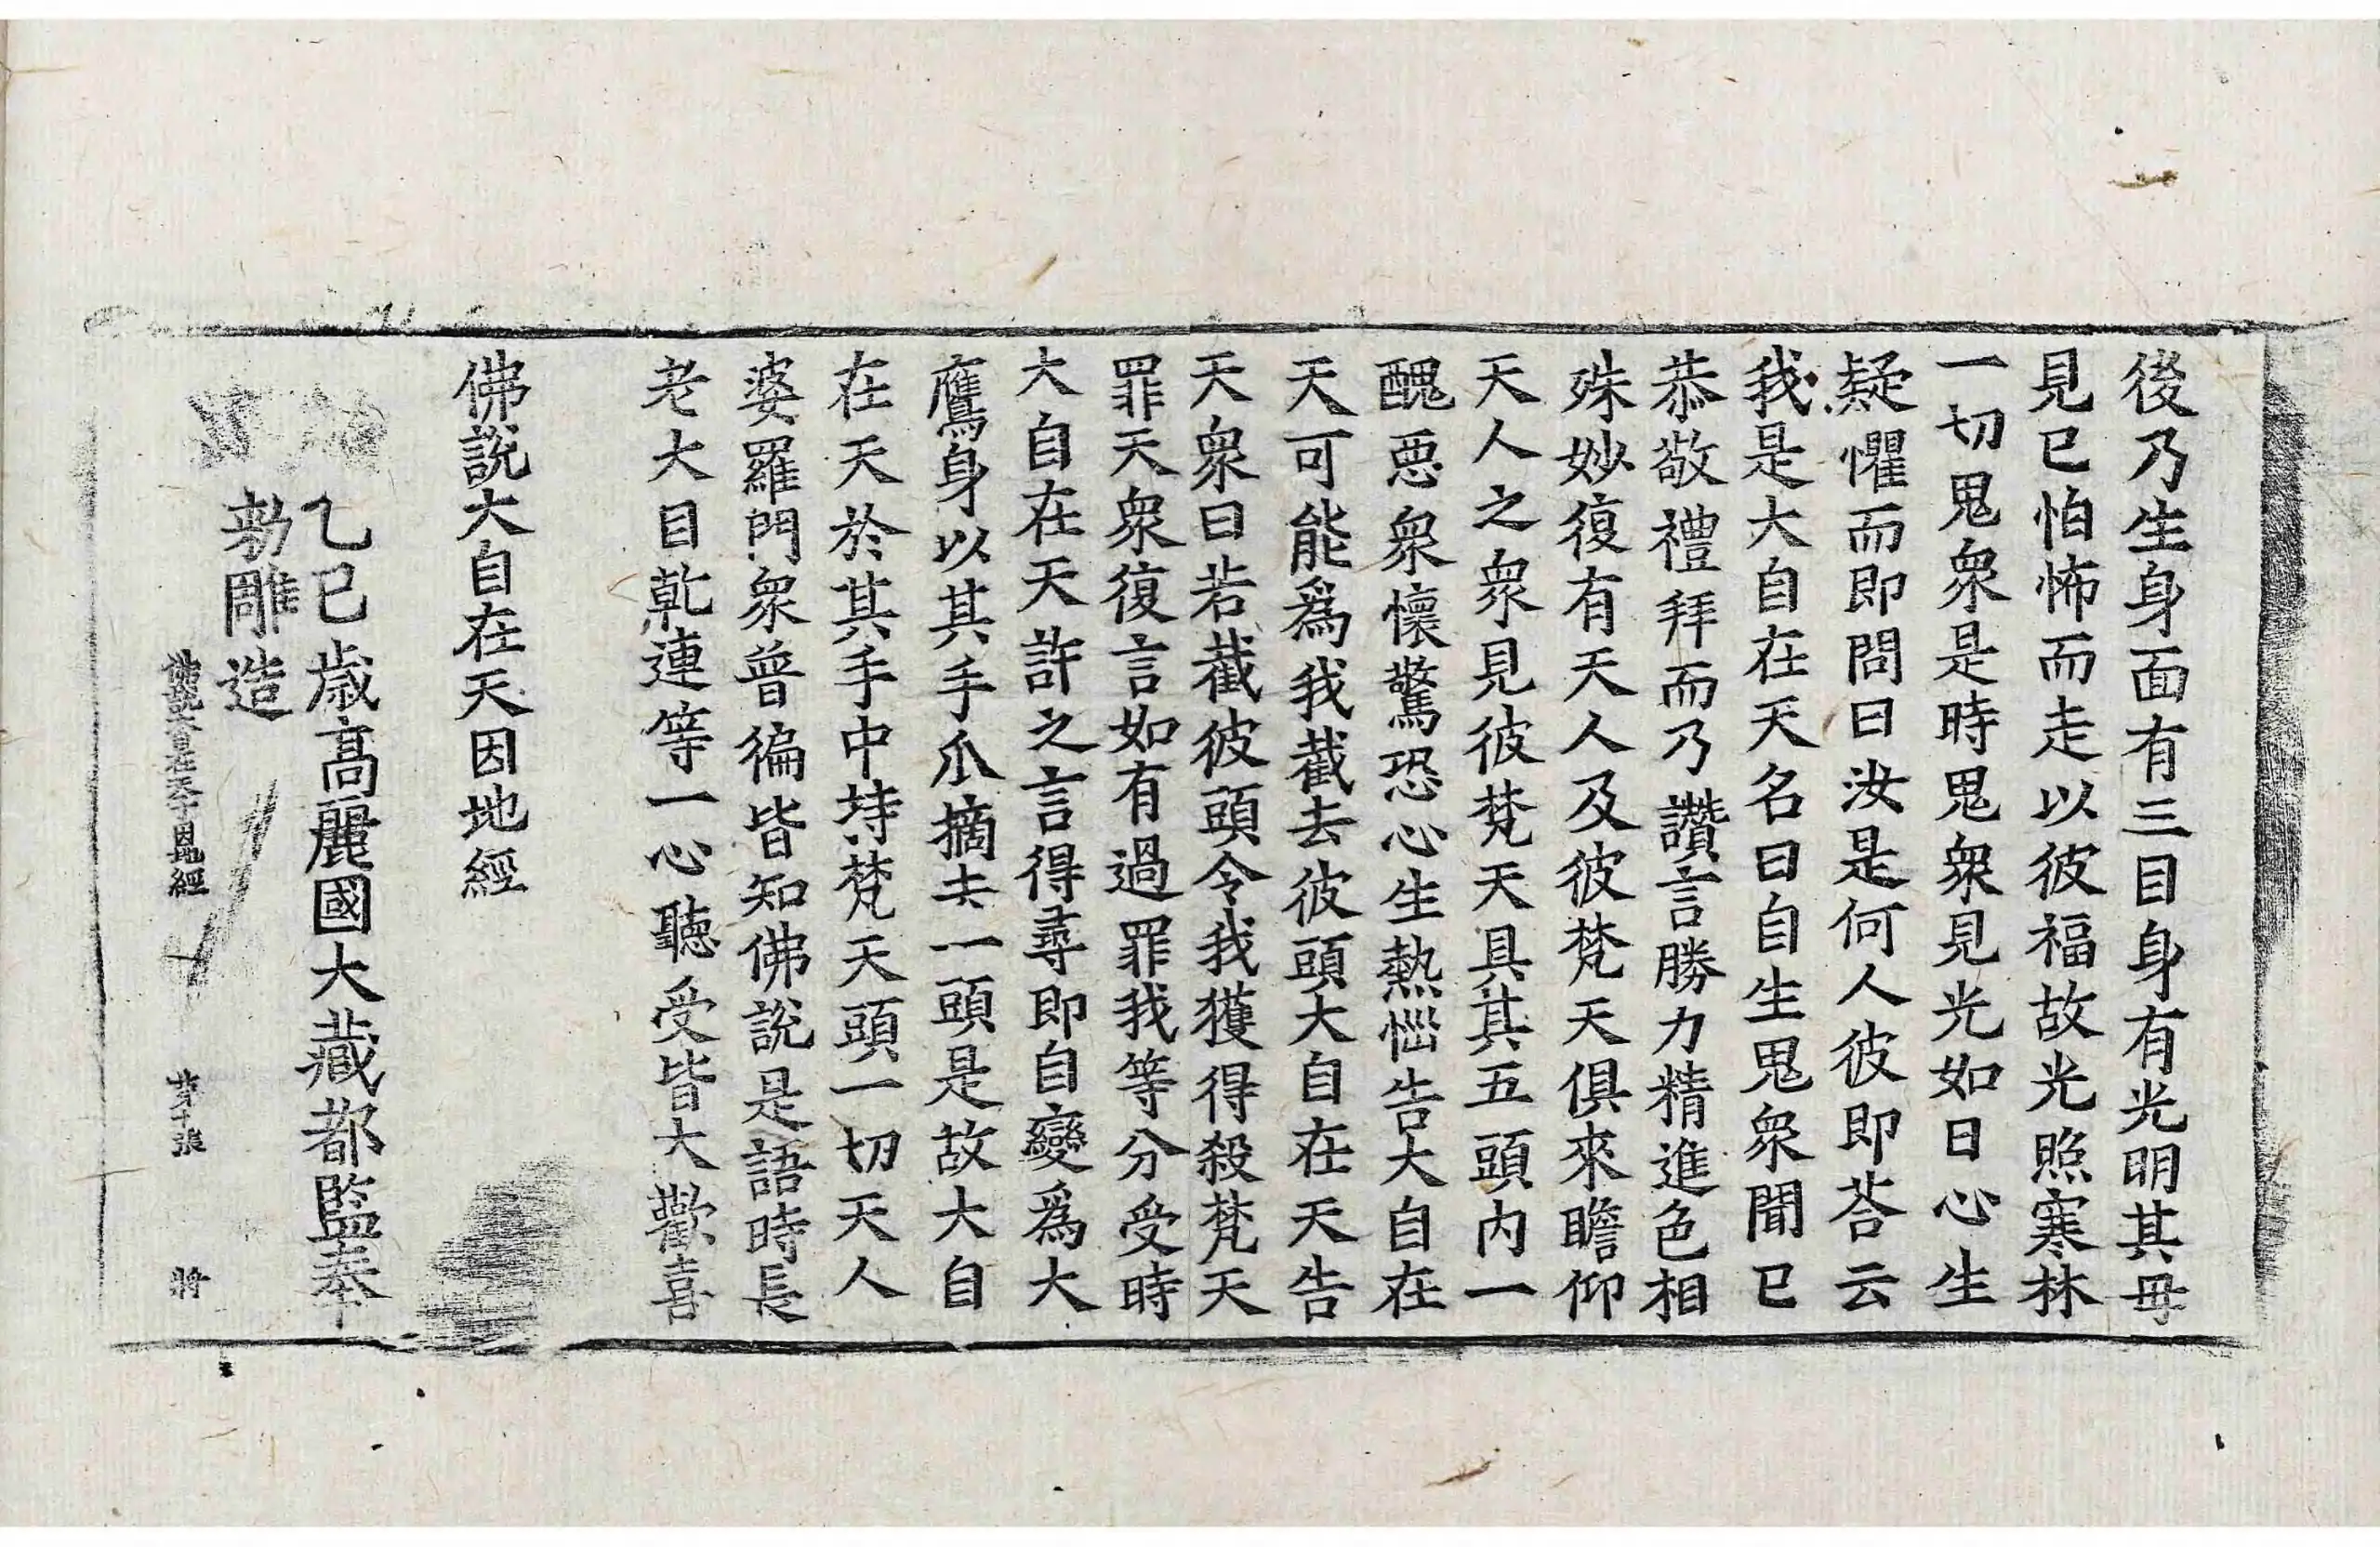 後乃生身面有三目身有光明其毋
見已怕怖而走以彼福故光照寒林
一切鬼衆是時鬼衆見光如日心生
疑懼而即問曰汝是何人彼即荅云
我是大自在天名曰自生鬼衆聞已
恭敬禮拜而乃讚言勝力精進色相
殊妙復有天人及彼梵天俱來瞻仰
天人之衆見彼梵天具其五頭内一
醜恶衆懷驚恐心生熱惱告大自在
天可能爲我截去彼頭大自在天告
天衆曰若截彼頭令我獲得殺梵天
罪天衆復言如有過罪我等分受時
大自在天許之言得尋即自變爲大
鷹身以其手爪摘去一頭是故大自
在天於其手中持梵天頭一切天人
婆羅門衆普徧皆知佛說是語時長
老大目乾連等一心聽受皆大歡喜
佛說大自在天因地經
乙巳歳高麗國大藏都監奉
勑雕造
佛說大自在天子因地經 第十張 將